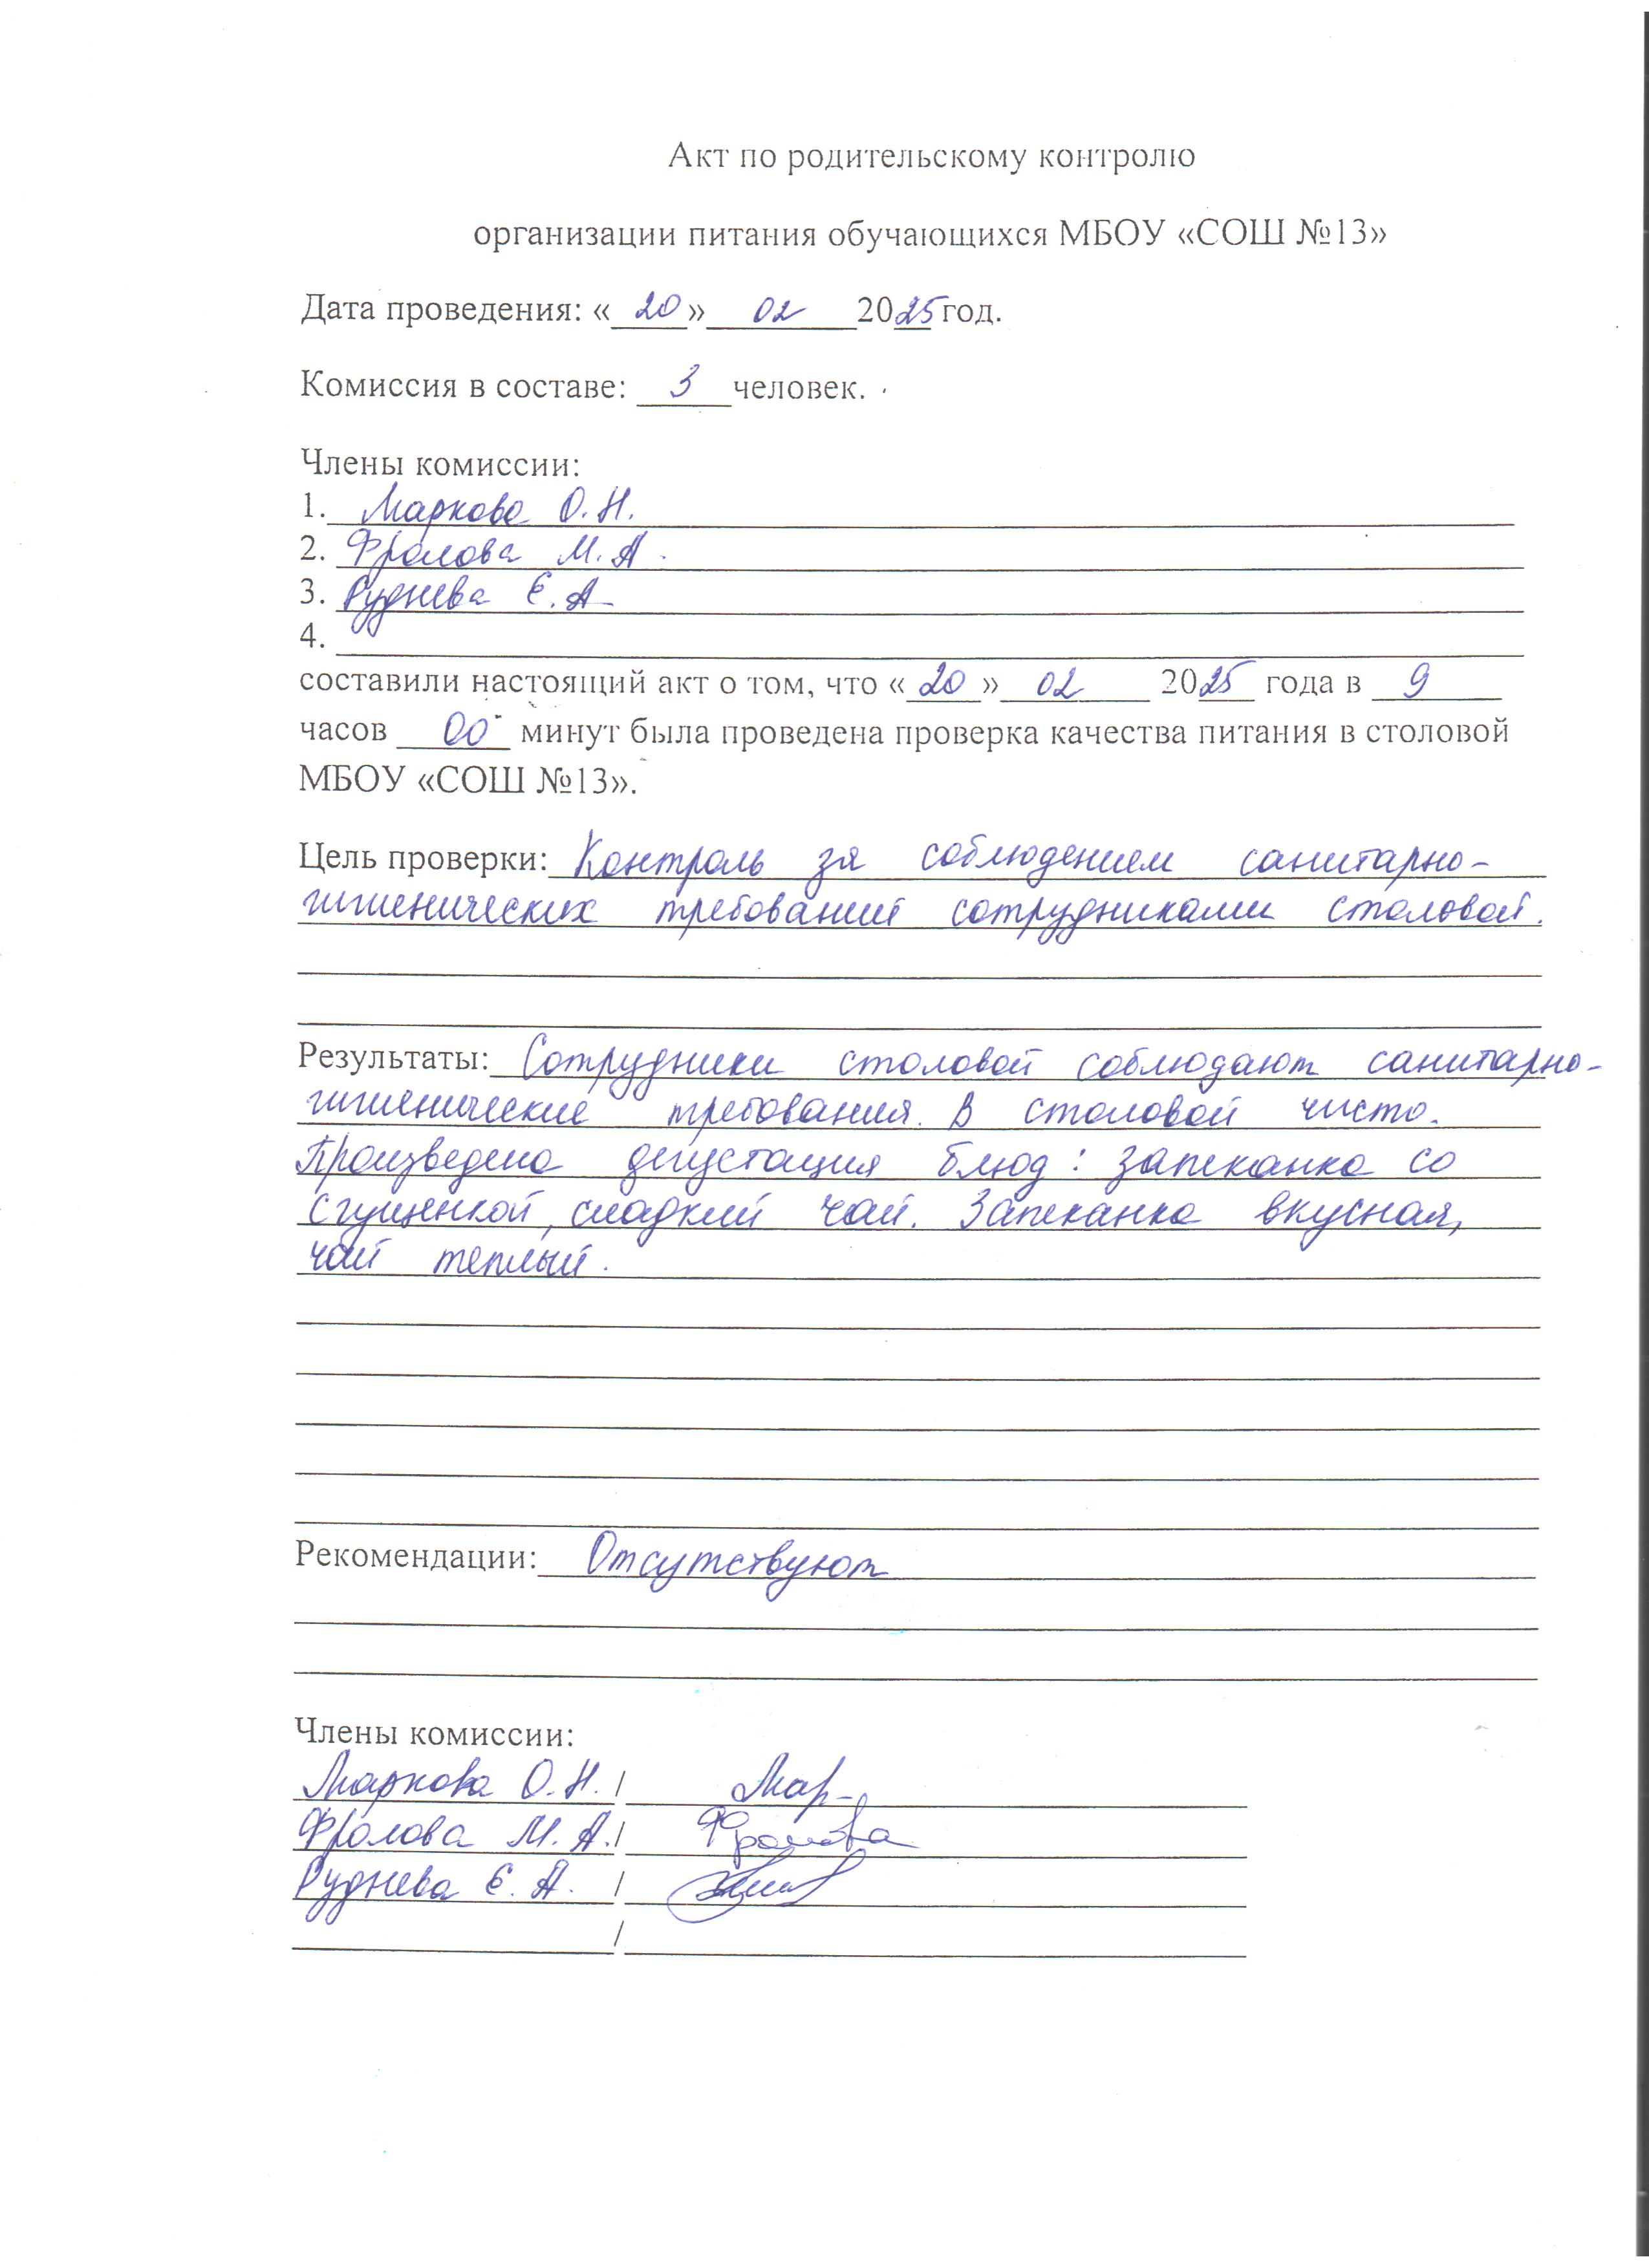 Акт по родительскому контролю
организации питания обучающихся МБОУ «СОШ №13»
Дата проведения: «20» 02 2025 год.
Комиссия в составе: 3 человек.
Члены комиссии:
1. Маркова О.Н.
2. Фролова М.А.
3. Руднева Е.А
4.
составили настоящий акт о том, что «20» 02 2025 года в 9
часов 00 минут была проведена проверка качества питания в столовой
МБОУ «СОШ №13».
Цель проверки: Контроль за соблюдением санитарно-
гигиенических требований сотрудниками столовой.
Результаты: Сотрудники столовой соблюдают санитарно-
гигиенические требования. В столовой чисто.
Произведена дегустация блюд: запеканка со
сгущенкой, сладкий чай. Запеканка вкусная,
чай теплый.
Рекомендации: Отсутствуют
Члены комиссии:
Маркова О.Н. / Мар-
Фролова М.А. / Фролова
Руднева Е.А. /
/